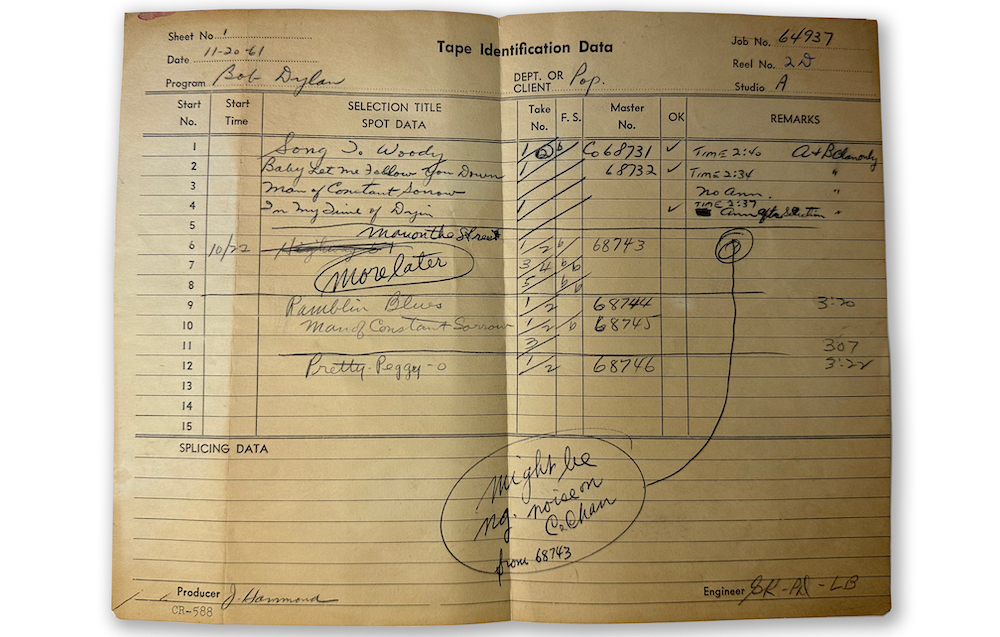 Sheet No. 1
Date 11-20-61
Program Bob Dylan
Tape Identification Data
DEPT. OR CLIENT Pop.
Job No. 64937
Reel No. 2D
Studio A
Start No. Start Time SELECTION TITLE SPOT DATA Take No. F. S. Master No. OK REMARKS
1 Song To Woody 1 2 b Co 68731 ✓ TIME 2:40 A+B Chan only
2 Baby Let Me Follow You Down 1 68732 ✓ TIME 2:34 "
3 Man of Constant Sorrow no Ann. "
4 In My Time of Dyin 1 ✓ TIME 2:37 Ann after Selection "
5 Man on the Street
6 10/22 1 2 b 68743
7 more later 3 4 b b
8 5 b b
9 Ramblin Blues 1 2 68744 3:20
10 Man of Constant Sorrow 1 2 b 68745
11 3 307
12 Pretty-Peggy-O 1 2 68746 3:22
13
14
15
SPLICING DATA
might be
ng. noise on
C. Chan
from 68743
Producer J. Hammond
CR-588
Engineer